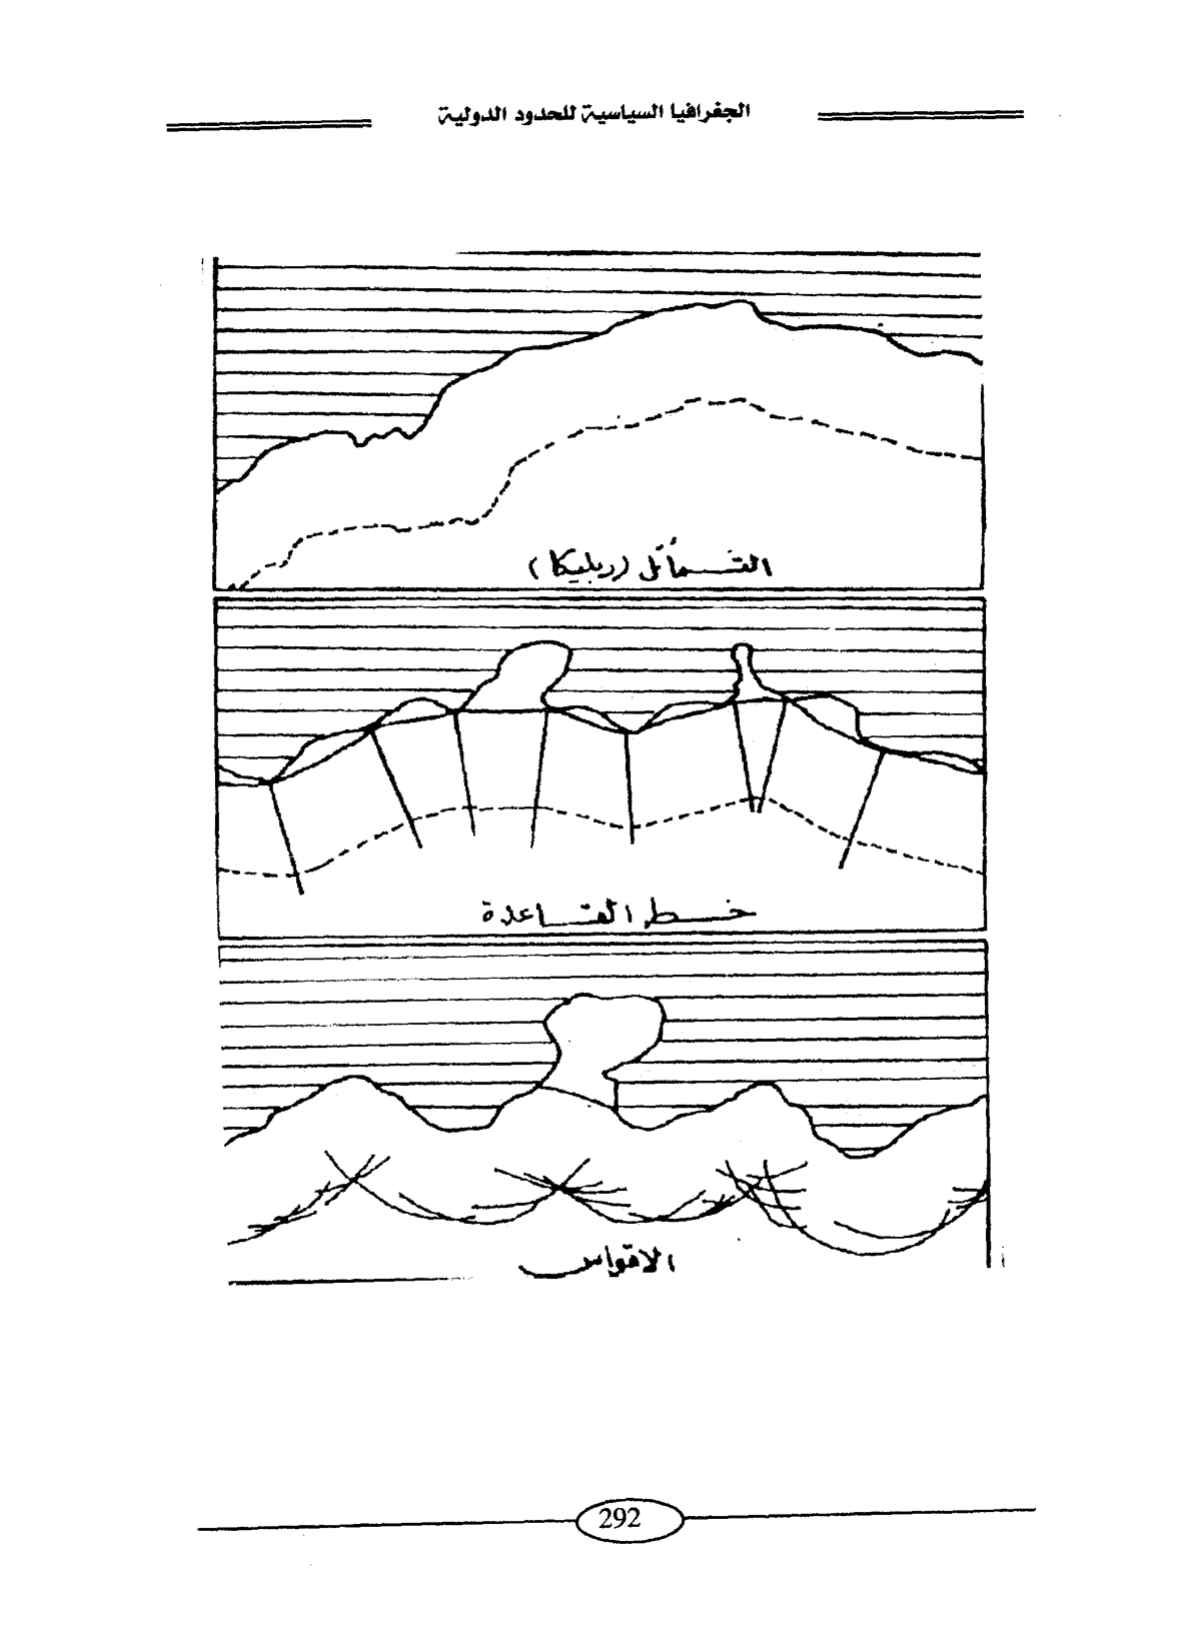 الجغرافيا السياسية للحدود الدولية
التماثل (ربليكا)
خط القاعدة
الاقواس
292